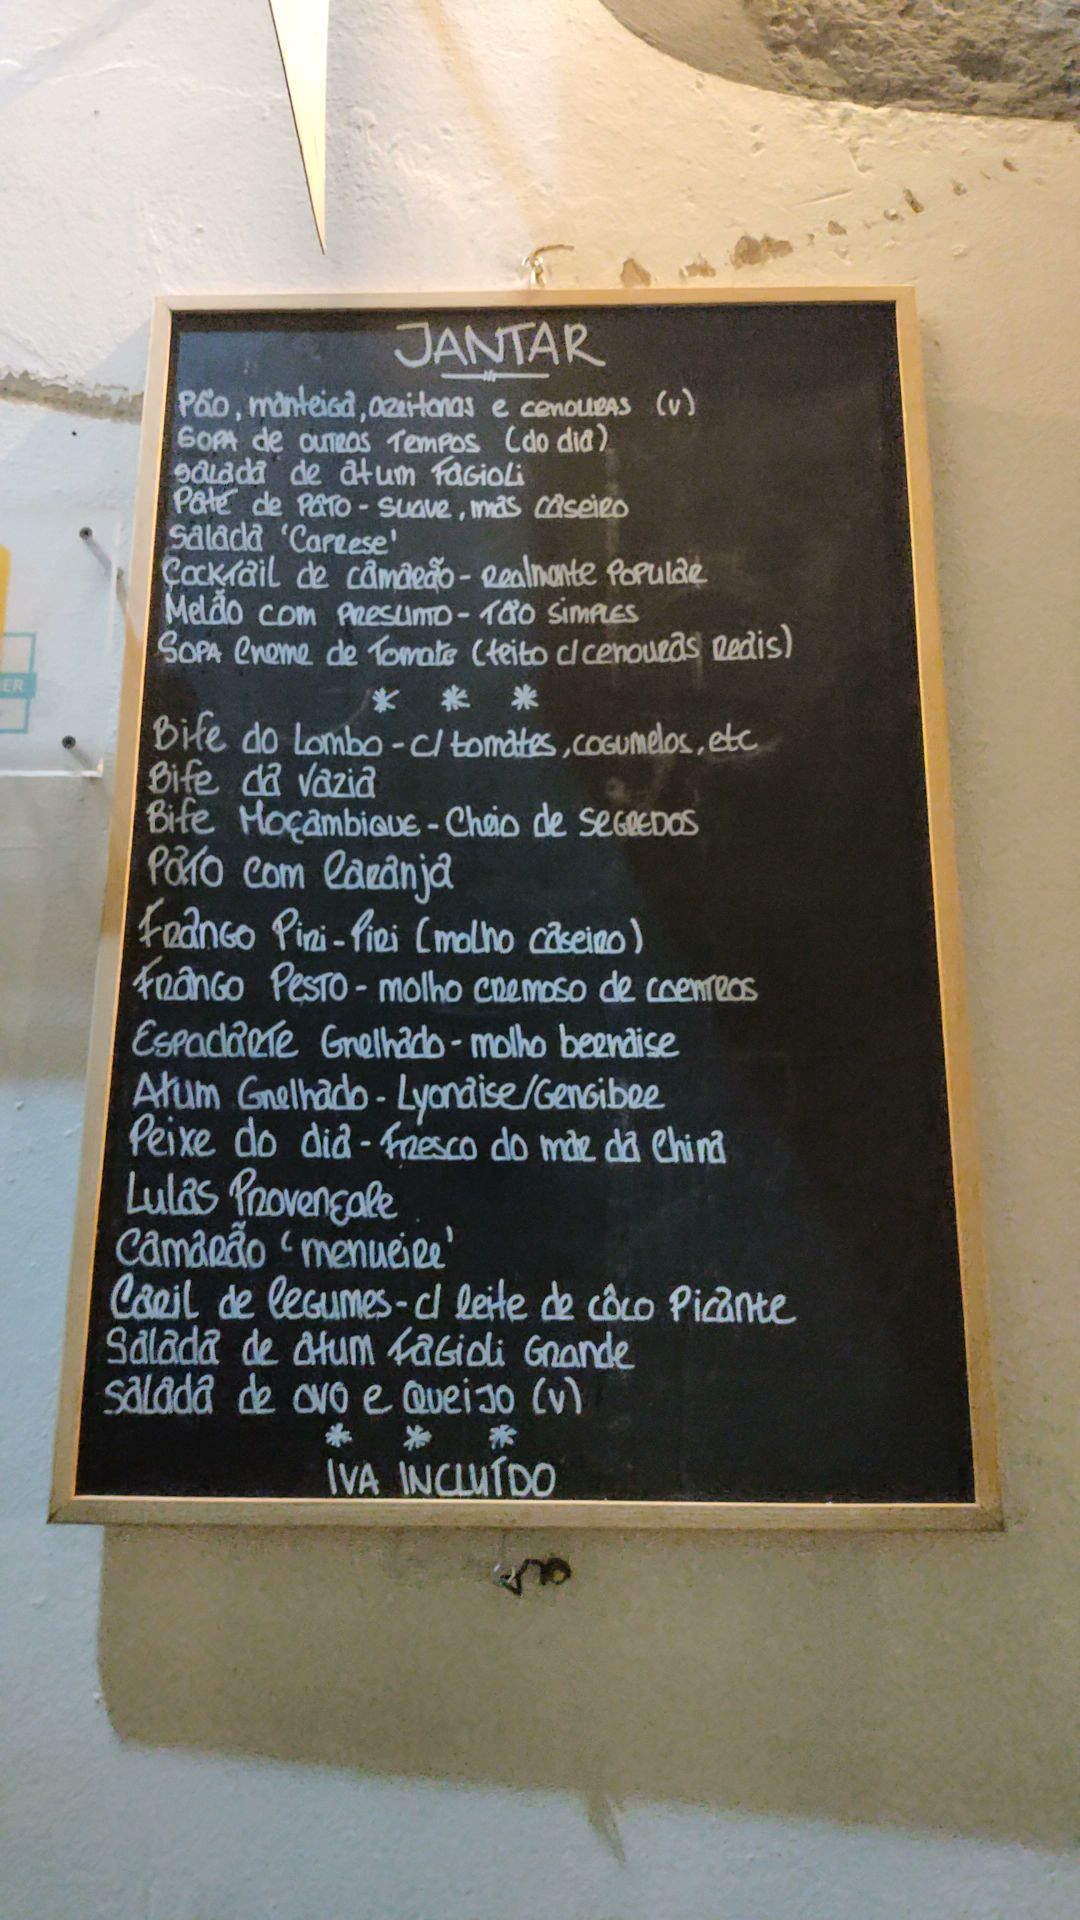 JANTAR
Pão, manteiga, azeitonas e cenouras (v)
Sopa de outros tempos (do dia)
Salada de atum Fagioli
Paté de pato - suave, mas caseiro
Salada 'Caprese'
Cocktail de camarão - realmente popular
Melão com presunto - tão simples
Sopa creme de tomate (feito c/ cenouras reais)
* * *
Bife do Lombo - c/ tomates, cogumelos, etc
Bife da vazia
Bife Moçambique - Cheio de segredos
Pato com laranja
Frango Piri-Piri (molho caseiro)
Frango Pesto - molho cremoso de coentros
Espadarte Grelhado - molho bernaise
Atum Grelhado - Lyonaise/Gengibre
Peixe do dia - fresco do mar da China
Lulas Provençale
Camarão 'menueire'
Caril de legumes - c/ leite de côco picante
Salada de atum Fagioli Grande
Salada de ovo e queijo (v)
* * *
IVA INCLUÍDO
ER